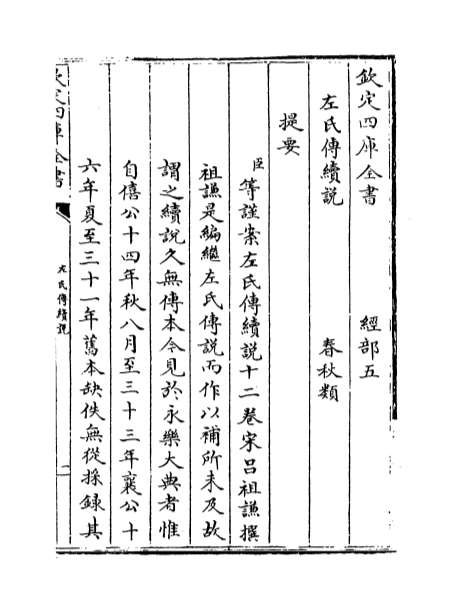 欽定四庫全書 經部五
左氏傳續說 春秋類
提要
臣等謹案左氏傳續說十二卷宋呂祖謙撰
祖謙是編繼左氏傳說而作以補所未及故
謂之續說久無傳本今見於永樂大典者惟
自僖公十四年秋八月至三十三年襄公十
六年夏至三十一年舊本缺佚無從採錄其
欽定四庫全書
左氏傳續說
一